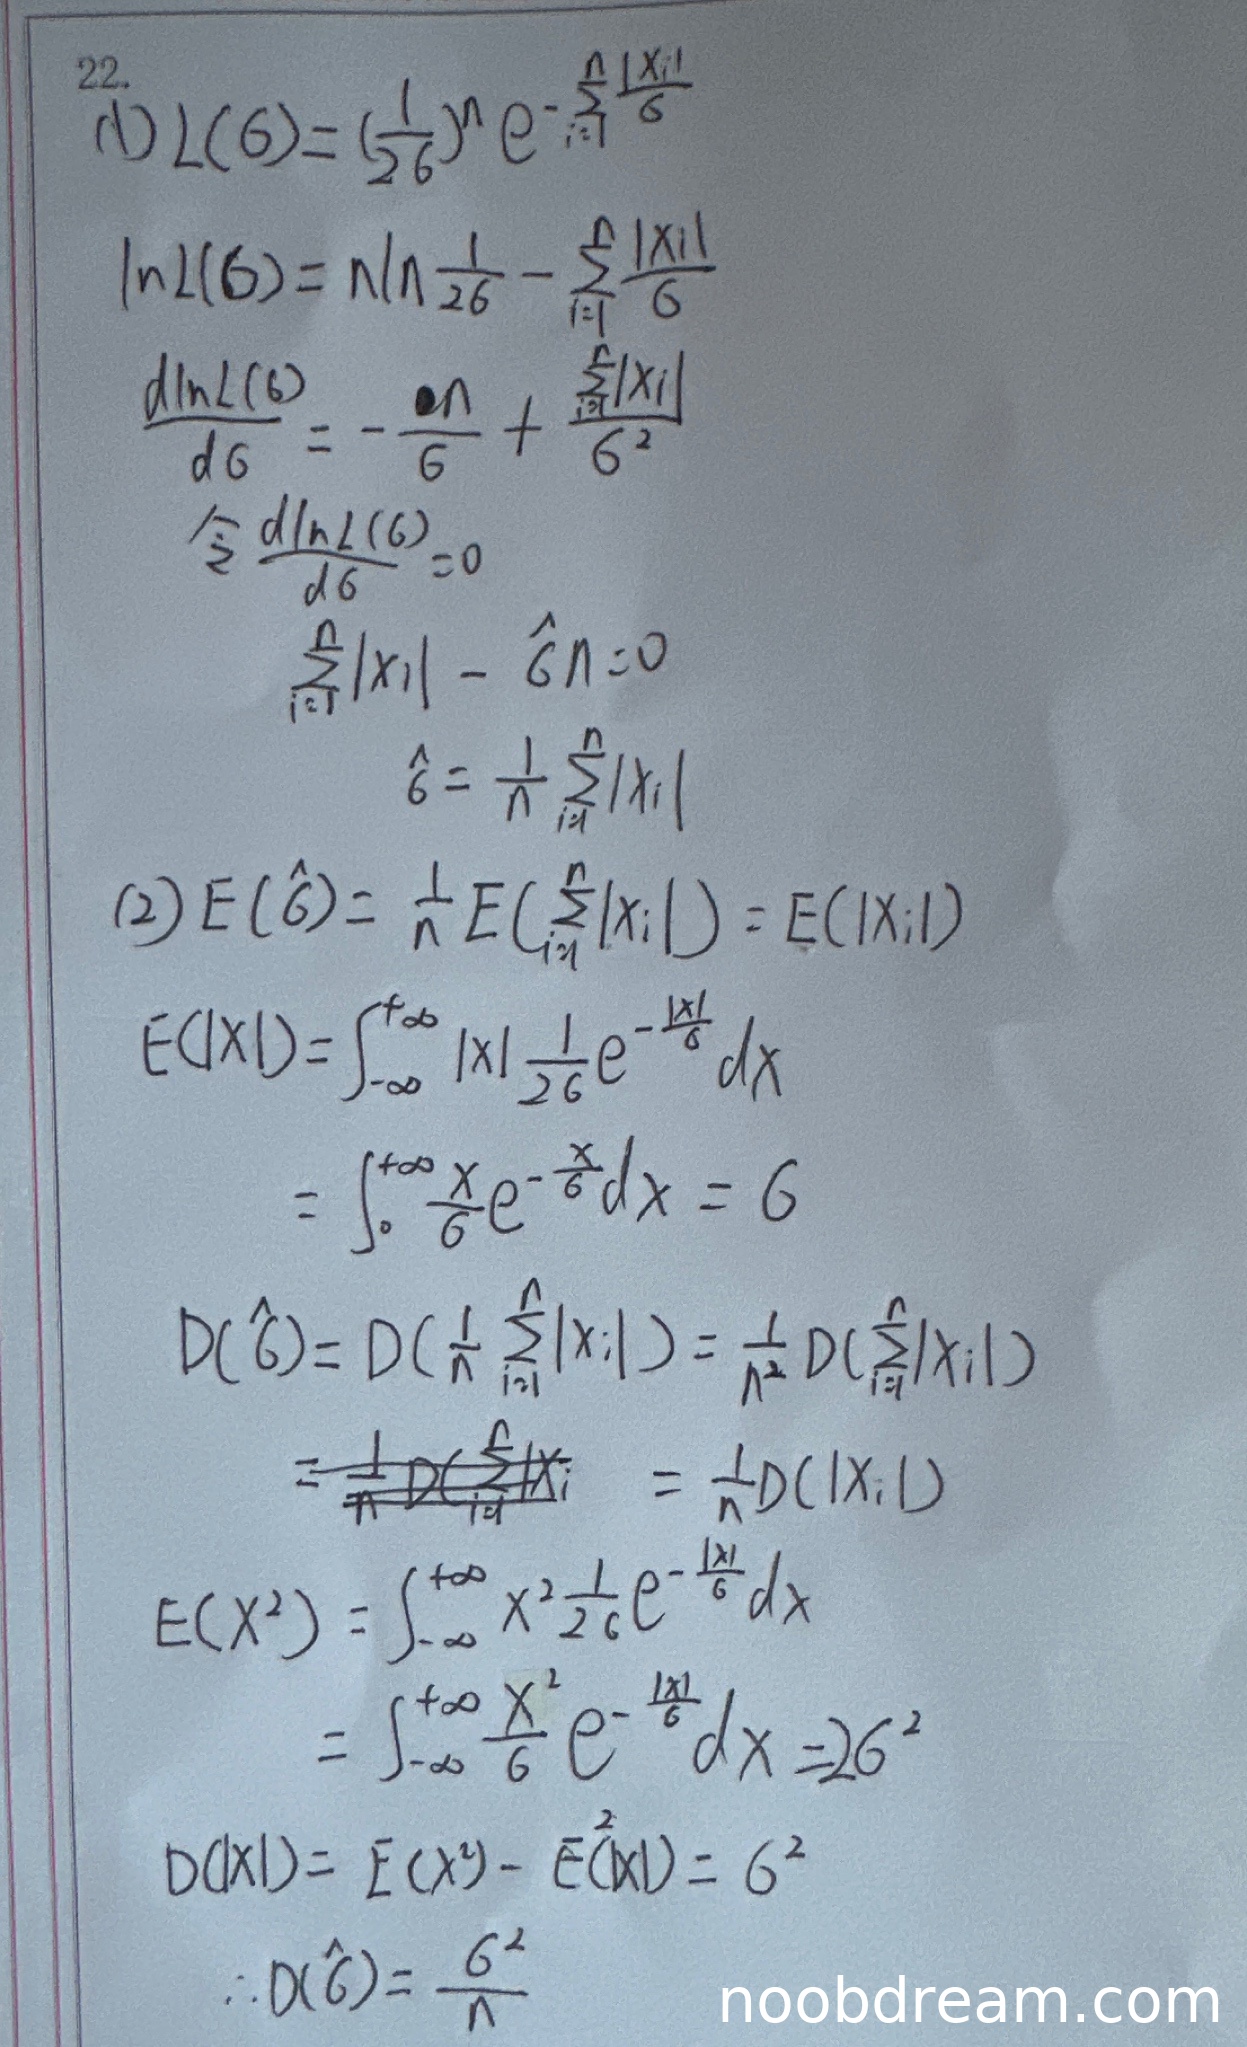 22.
(1) L(σ) = (1/2σ)ⁿ e^(-∑_{i=1}^{n} |Xi|/σ)
lnL(σ) = n ln 1/2σ - ∑_{i=1}^{n} |Xi|/σ
dlnL(σ)/dσ = - n/σ + ∑_{i=1}^{n}|Xi|/σ²
令 dlnL(σ)/dσ = 0
∑_{i=1}^{n}|Xi| - σ̂n = 0
σ̂ = 1/n ∑_{i=1}^{n}|Xi|
(2) E(σ̂) = 1/n E(∑_{i=1}^{n}|Xi|) = E(|Xi|)
E(|X|) = ∫_{-∞}^{+∞} |x| 1/2σ e^(-|x|/σ) dx
= ∫_{0}^{+∞} x/σ e^(-x/σ) dx = σ
D(σ̂) = D(1/n ∑_{i=1}^{n}|Xi|) = 1/n² D(∑_{i=1}^{n}|Xi|)
= 1/n D(∑_{i=1}^{n}|Xi = 1/n D(|Xi|)
E(X²) = ∫_{-∞}^{+∞} x² 1/2σ e^(-|x|/σ) dx
= ∫_{-∞}^{+∞} x²/σ e^(-|x|/σ) dx = 2σ²
D(|X|) = E(X²) - E²(|X|) = σ²
∴ D(σ̂) = σ²/n
noobdream.com